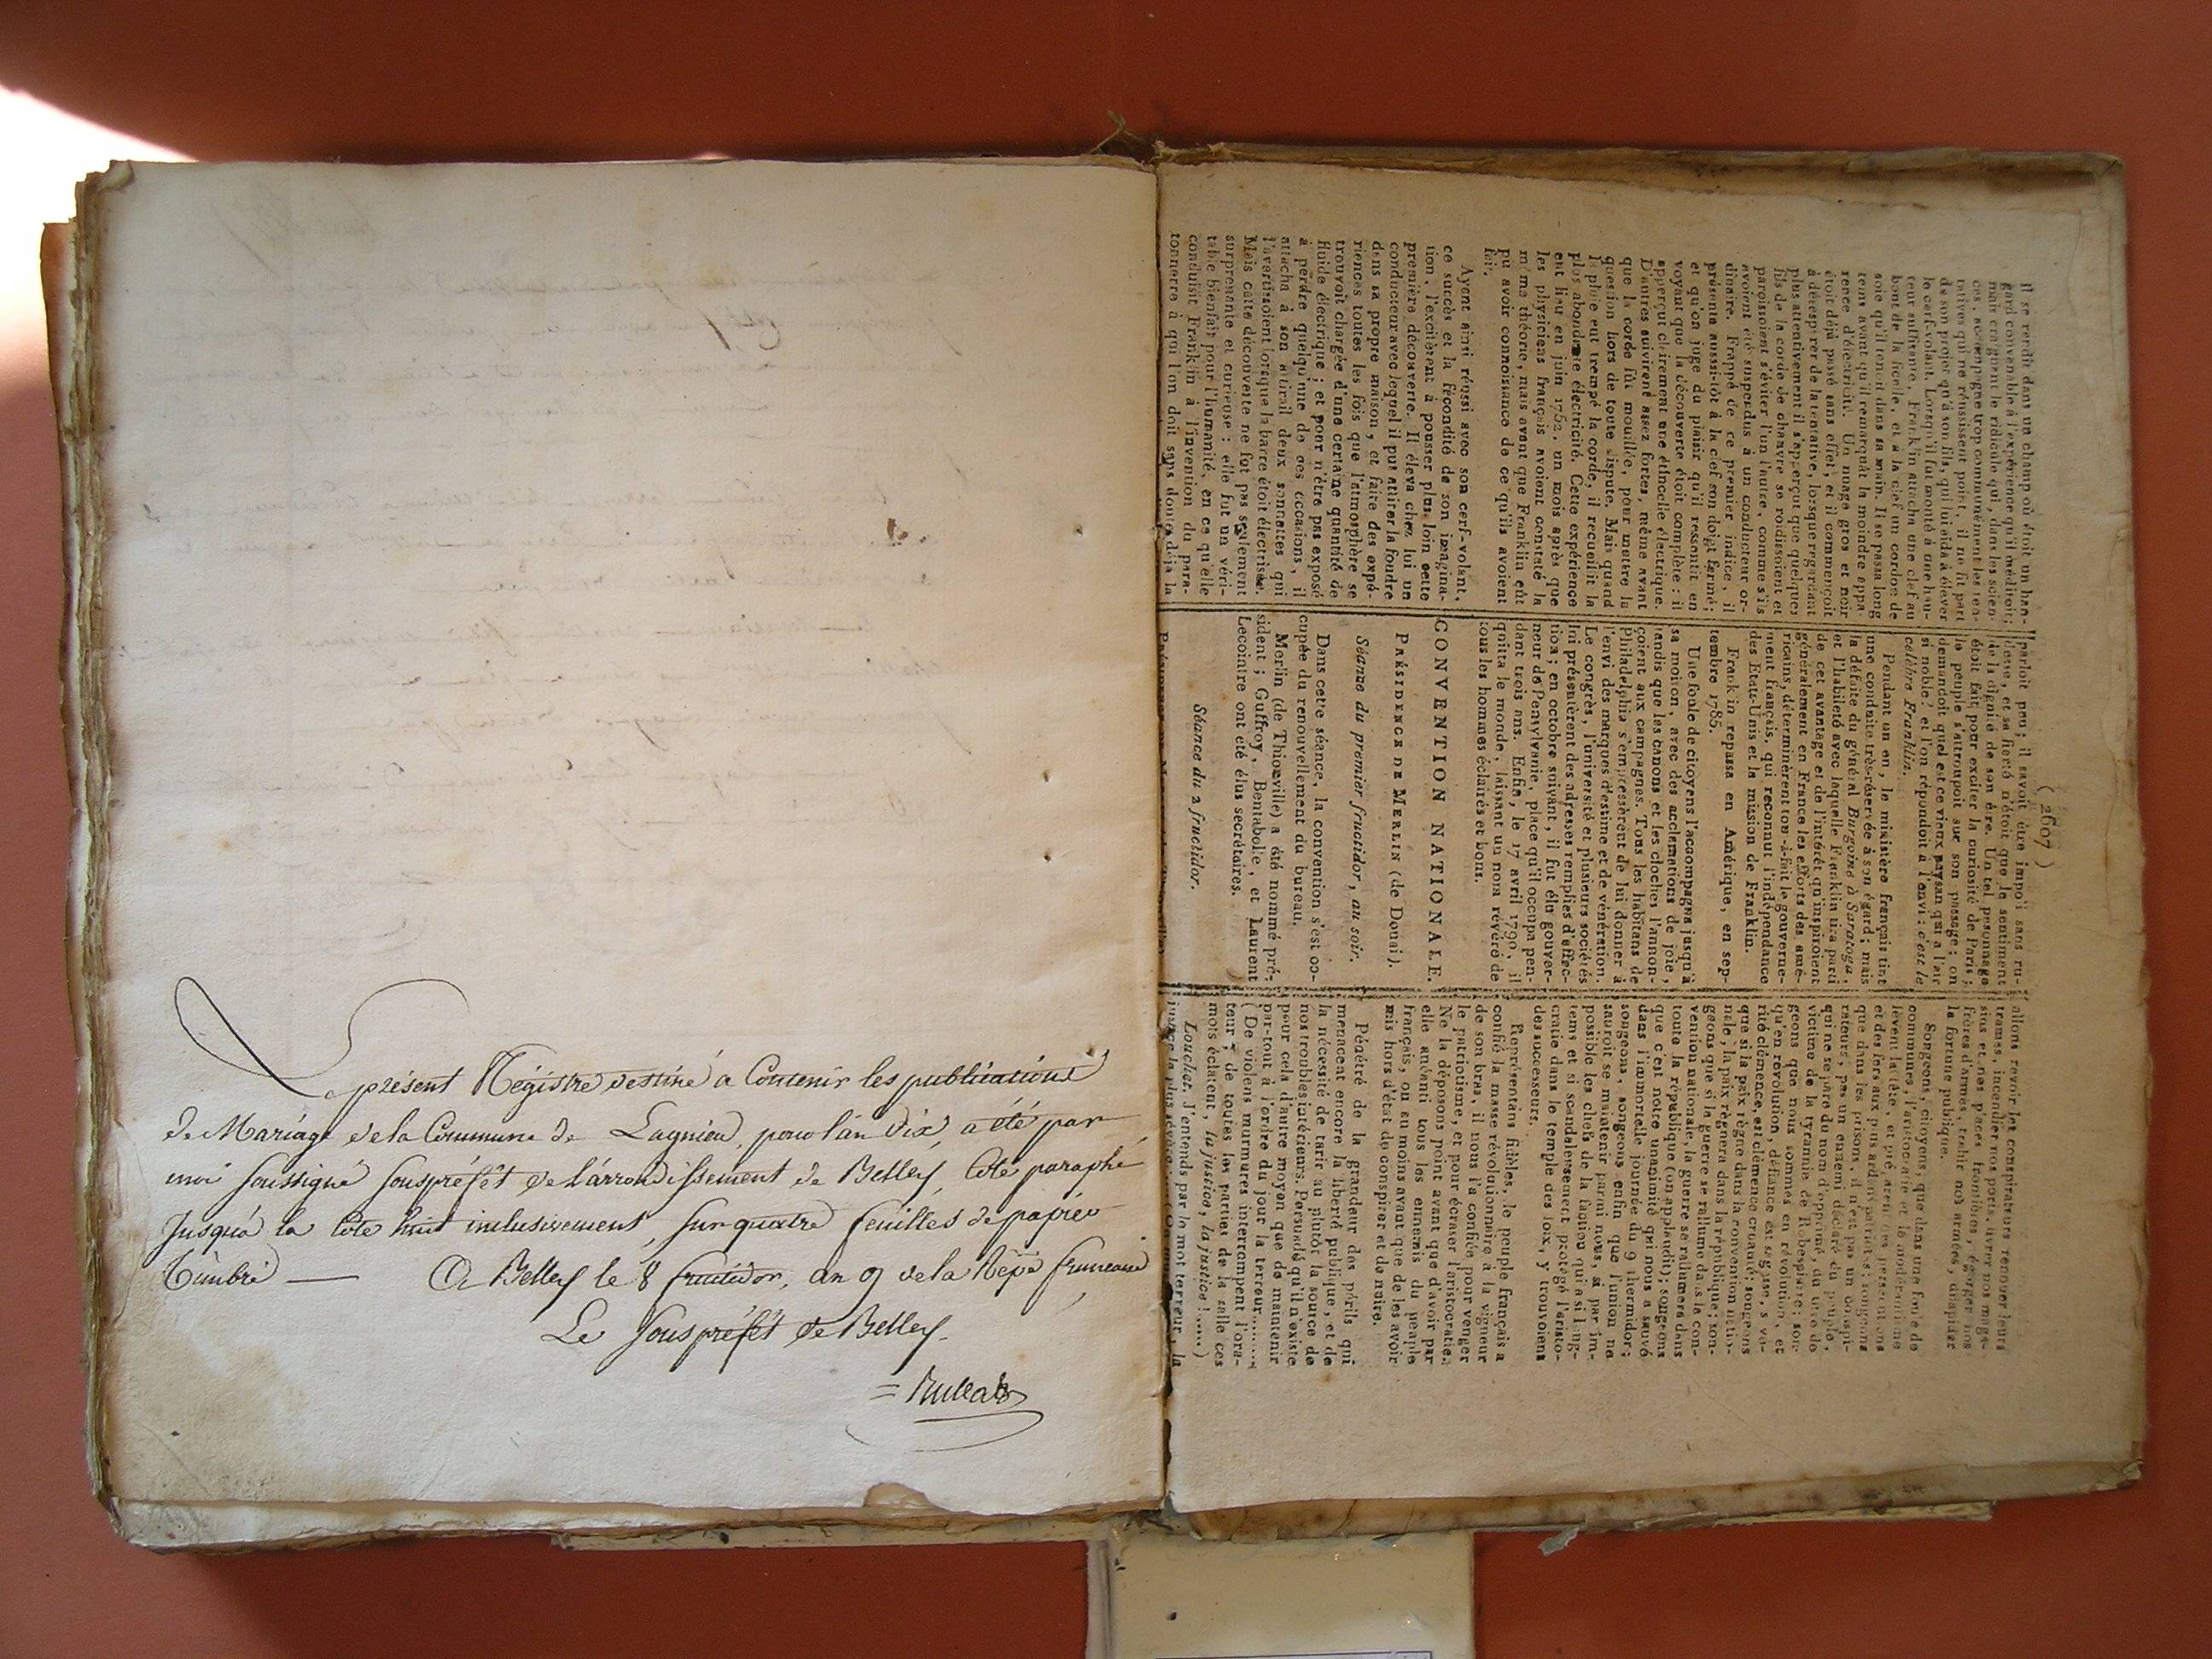 Le présent Régistre destiné a Contenir les publications
de Mariage de la Commune de Lagnieu, pour l'an dix, a été par
moi soussigné souspréfét de l'arrondissement de Belley, Coté paraphé
Jusqu'à la Côte huit inclusivement, sur quatre feuilles de papier
Timbré — A Belley le 8 fructidor, an 9 de la Rép française
Le Souspréfét de Belley.
(2607)
il se rendit dans un champ où étoit un han-
gard convenable à l'expérience qu'il méditoit;
mais craignant le ridicule qui, dans les scien-
ces, accompagne trop communément les ten-
tatives qui ne réussissent point, il ne fit part
de son projet qu'à son fils, qui lui aida à élever
le cerf-volant. Lorsqu'il fut monté à une hau-
teur suffisante, Franklin attacha une clef au
bout de la ficelle, et à la clef un cordon de
soie qu'il tenoit dans sa main. Il se passa long
tems avant qu'il remarquât la moindre appa-
rence d'électricité. Un nuage gros et noir
étoit déjà passé sans effet, et il commençoit
à désespérer de la tentative, lorsque regardant
plus attentivement il s'apperçut que quelques
fils de la corde de chanvre se roidissoient et
paroissoient s'éviter l'un l'autre, comme s'ils
avoient été suspendus à un conducteur or-
dinaire. Frappé de ce premier indice, il
présenta aussi-tôt à la clef son doigt fermé;
et qu'on juge du plaisir qu'il ressentit en
voyant que la découverte étoit complète: il
apperçut clairement une étincelle électrique.
D'autres suivirent assez fortes, même avant
que la corde fût mouillée, pour mettre la
question hors de toute dispute. Mais quand
la pluie eut trempé la corde, il recueillit la
plus abondante électricité. Cette expérience
eut lieu en juin 1752, un mois après que
les physiciens français avoient constaté la
même théorie, mais avant que Franklin eût
pu avoir connoissance de ce qu'ils avoient
fait.
Ayant ainsi réussi avec son cerf-volant,
ce succès et la fécondité de son imagina-
tion, l'excitèrent à pousser plus loin cette
première découverte. Il éleva chez lui un
conducteur avec lequel il put attirer la foudre
dans sa propre maison, et faire des expé-
riences toutes les fois que l'atmosphère se
trouvoit chargée d'une certaine quantité de
fluide électrique; et pour n'être pas exposé
à perdre quelqu'une de ces occasions, il
attacha à son attirail deux sonnettes qui
l'avertissoient lorsque la barre étoit électrisée.
Mais cette découverte ne fut pas seulement
surprenante et curieuse: elle fut un véri-
table bienfait pour l'humanité, en ce qu'elle
conduisit Franklin à l'invention du para-
tonnerre à qui l'on doit sans doute déjà la
parloit peu; il savoit être impoli sans ru-
desse, et sa fierté n'étoit que le sentiment
de la dignité de son être. Un tel personnage
étoit fait pour exciter la curiosité de Paris;
le peuple s'attroupoit sur son passage; on
demandoit quel est ce vieux paysan qui a l'air
si noble? et l'on répondoit à l'envi: c'est le
célèbre Franklin.
Pendant un an, le ministère français tint
une conduite très-réservée à son égard; mais
la défaite du général Burgoine à Saratoga,
et l'habileté avec laquelle Franklin tira parti
de cet avantage et de l'intérêt qu'inspiroient
généralement en France les efforts des amé-
ricains, déterminèrent tout-à-fait le gouverne-
ment français, qui reconnut l'indépendance
des Etats-Unis et la mission de Franklin.
Franklin repassa en Amérique, en sep-
tembre 1785.
Une foule de citoyens l'accompagna jusqu'à
sa maison, avec des acclamations de joie,
tandis que les canons et les cloches l'annon-
çoient aux campagnes. Tous les habitans de
Philadelphia s'empressèrent de lui donner à
l'envi des marques d'estime et de vénération.
Le congrès, l'université et plusieurs sociétés
lui présentèrent des adresses remplies d'affec-
tion; en octobre suivant, il fut élu gouver-
neur de Pensylvanie, place qu'il occupa pen-
dant trois ans. Enfin, le 17 avril 1790, il
quitta le monde, laissant un nom révéré de
tous les hommes éclairés et bons.
CONVENTION NATIONALE.
PRÉSIDENCE DE MERLIN (de Douai).
Séance du premier fructidor, au soir.
Dans cette séance, la convention s'est oc-
cupée du renouvellement du bureau.
Merlin (de Thionville) a été nommé pré-
sident; Guffroy, Bentabolle, et Laurent
Lecointre ont été élus secrétaires.
Séance du 2 fructidor.
allons revoir les conspirateurs renouer leurs
trames, incendier nos ports, livrer nos maga-
sins et nos places frontières, égorger nos
frères d'armes, trahir nos armées, dilapider
la fortune publique.
Songeons, citoyens, que dans une foule de
communes, l'aristocratie et le modérantisme
lèvent la tête, et préparent des persécutions
et des fers aux plus ardens patriotes; songeons
que dans les prisons, il n'est pas un conspi-
rateur, pas un ennemi déclaré du peuple,
qui ne se pare du nom d'opprimé, du titre de
victime de la tyrannie de Robespierre; son-
geons que nous sommes en révolution, et
qu'en révolution, défiance est sagesse, sévé-
rité clémence, et clémence cruauté; songeons
que si la paix règne dans la convention natio-
nale, la paix règnera dans la république; son-
geons que si la guerre se rallume dans la con-
vention nationale, la guerre se rallumera dans
toute la république (on applaudit); songeons
que c'est notre unanimité qui nous a sauvé
dans l'immortelle journée du 9 thermidor;
songeons, songeons enfin que l'union ne
sauroit se maintenir parmi nous, si par im-
possible les chefs de la faction qui a si long-
tems et si scandaleusement protégé l'aristo-
cratie dans le temple des loix, y trouvoient
des successeurs.
Représentans fidèles, le peuple français a
confié la masse révolutionnaire à la vigueur
de son bras, il nous l'a confiée pour venger
le patriotisme, et pour écraser l'aristocratie.
Ne la déposons point avant que d'avoir par
elle anéanti tous les ennemis du peuple
français, ou au moins avant que de les avoir
mis hors d'état de conspirer et de nuire.
Pénétré de la grandeur des périls qui
menacent encore la liberté publique, et de
la nécessité de tarir au plutôt la source de
nos troubles intérieurs. Persuadé qu'il n'existe
pour cela d'autre moyen que de maintenir
par-tout à l'ordre du jour la terreur.......
(De violens murmures interrompent l'ora-
teur; de toutes les parties de la salle ces
mots éclatent, la justice, la justice!......)
Louchet. J'entends par le mot terreur, la
justice la plus sévère